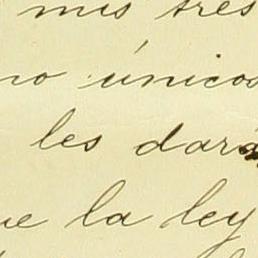 mis tres
no únicos
les dará
que la ley